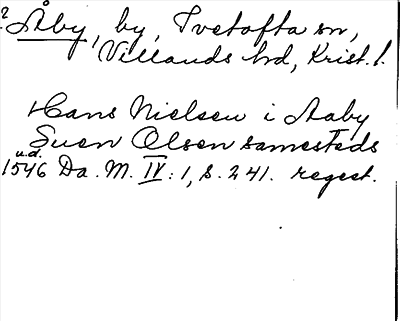 ? Åby, by, Ivetofta sn,
Villands hd, Krist. l.
Hans Nielsen i Aaby
Suen Olsen samesteds
u.d.
1546 Da. M. IV: 1, s. 241. regest.